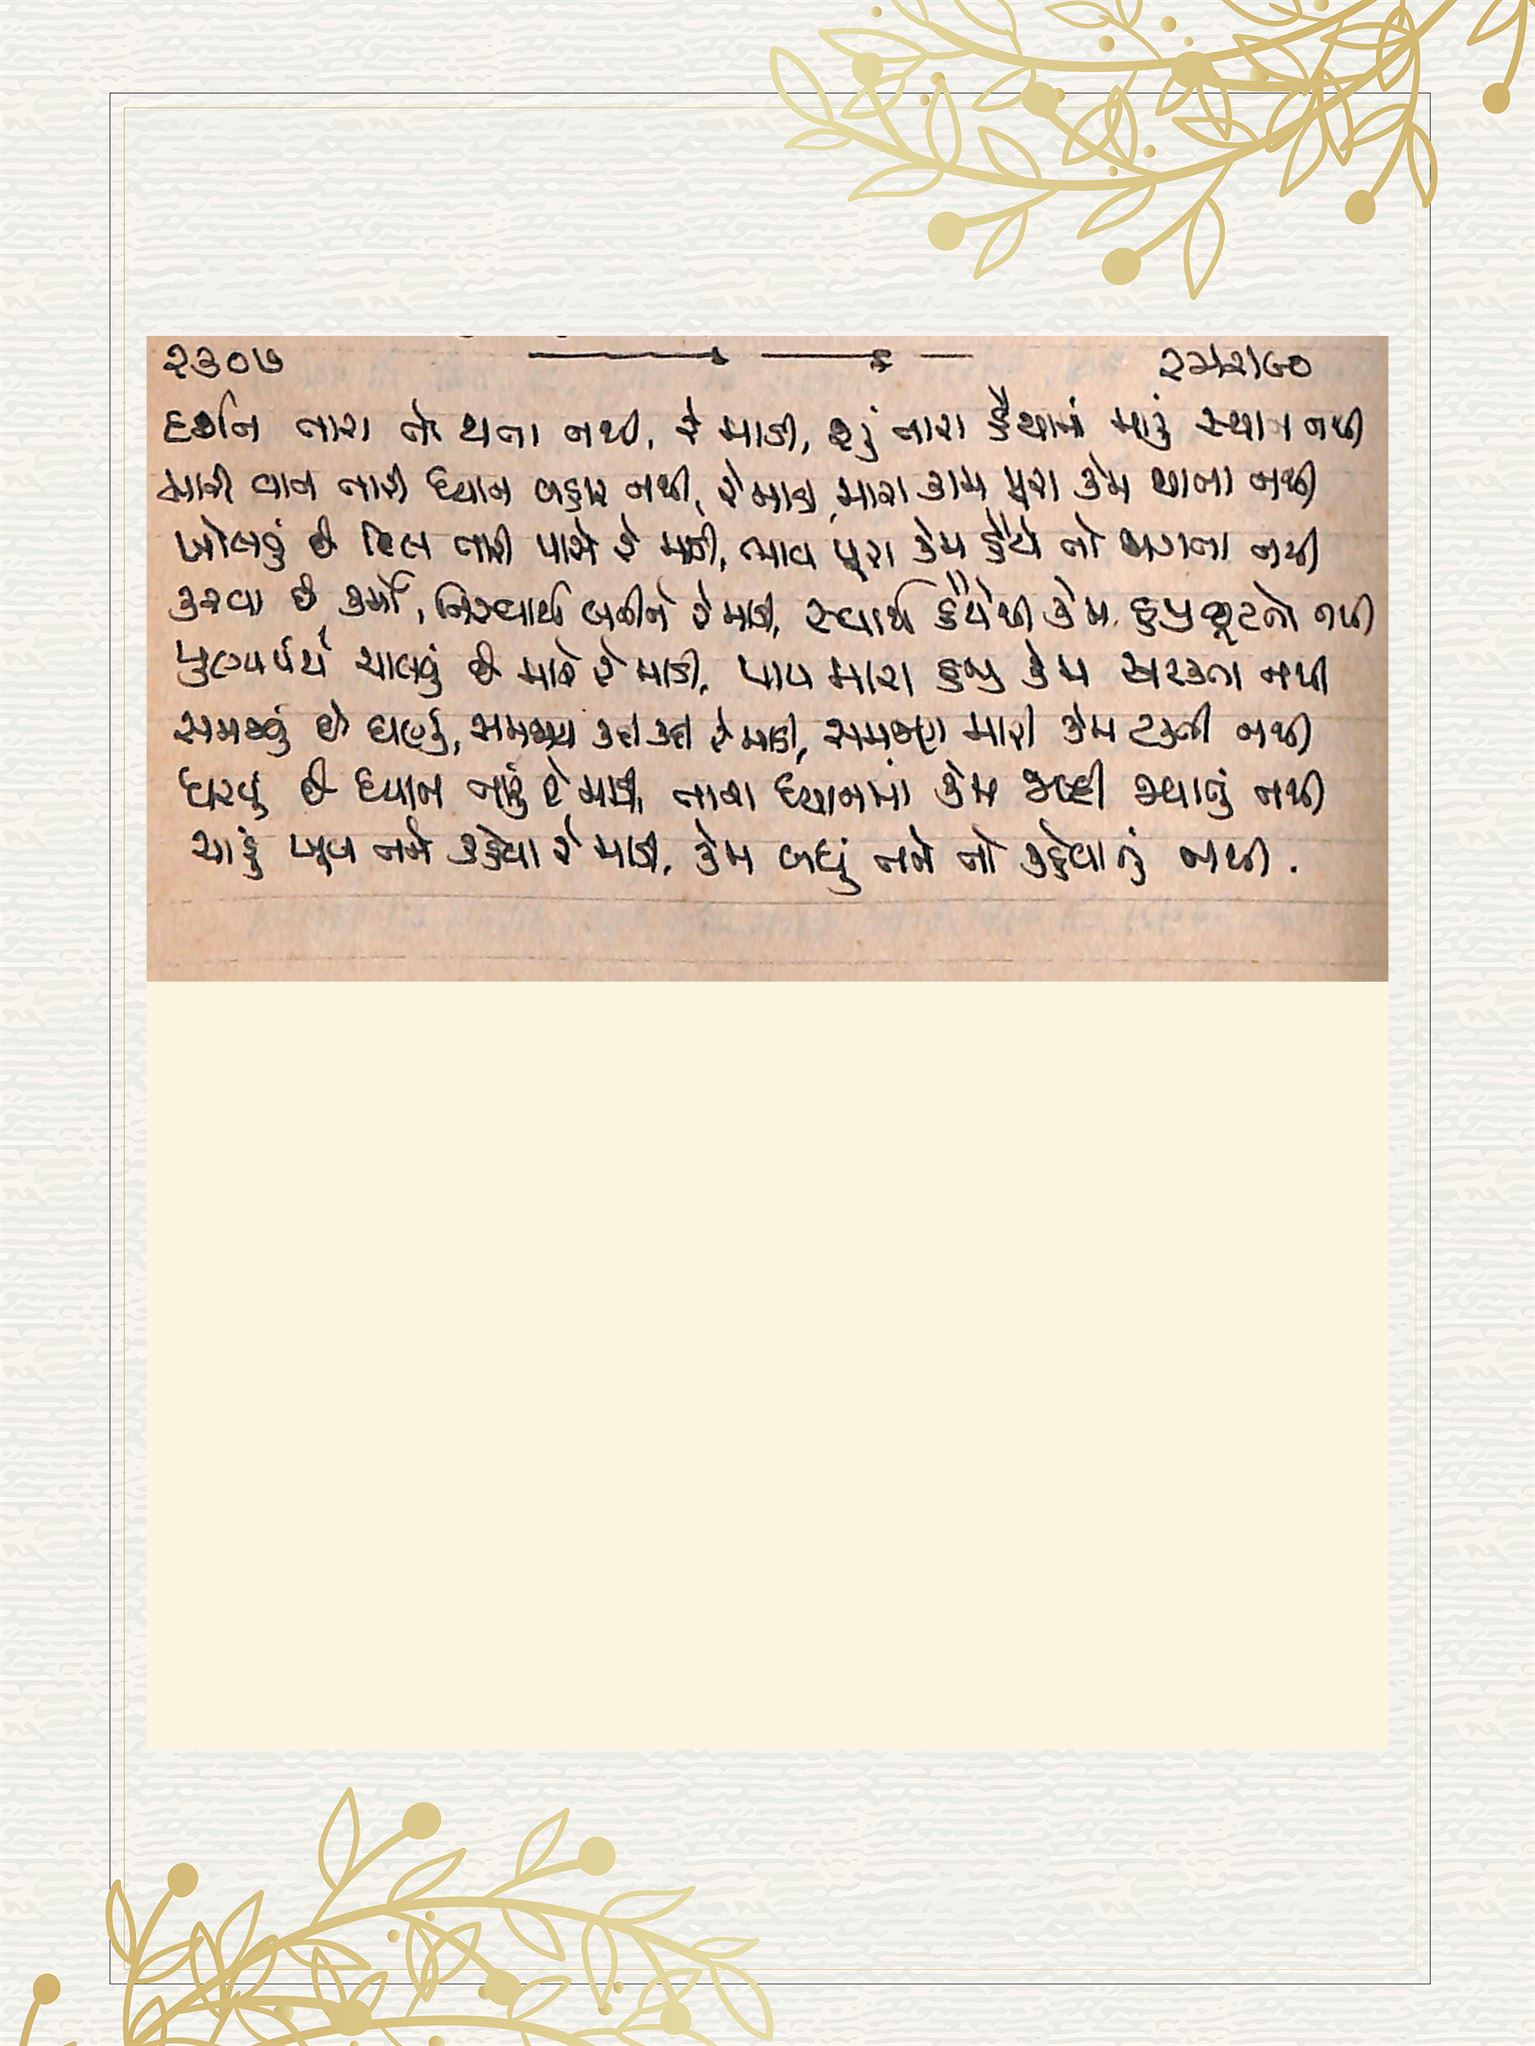 ૨૩૦૭ ૨૨/૨/૯૦
દર્શન તારા જો થતા નથી, રે માડી, શું તારા હૈયામાં મારું સ્થાન નથી
મારી વાત તારી ધ્યાન બહાર નથી, રે માડી, મારા કામ પૂરા કેમ થાતા નથી
ખોલવું છે દિલ તારી પાસે રે માડી, ભાવ પૂરા કેમ હૈયે તો જાગતા નથી
કરવા છે કર્મો, નિસ્વાર્થ બનીને રે માડી, સ્વાર્થ હૈયેથી કેમ હજુ છૂટતો નથી
પુણ્યપંથે ચાલવું છે મારે રે માડી, પાપ મારા હજુ કેમ અટકતા નથી
સમજવું છે ઘણું, સમજાય કદી કદી રે માડી, સમજણ મારી કેમ ટકતી નથી
ધરવું છે ધ્યાન તારું રે માડી, તારા ધ્યાનમાં કેમ જલ્દી જવાતું નથી
ચાહું ખૂબ તને કહેવા રે માડી, કેમ બધું તને તો કહેવાતું નથી.